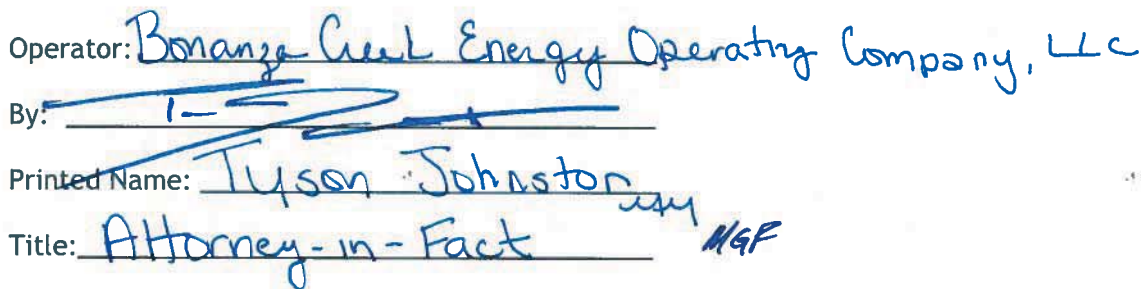 Operator: Bonanza Creek Energy Operating Company, LLC
By:
Printed Name: Tyson Johnston
Title: Attorney-in-Fact MGF